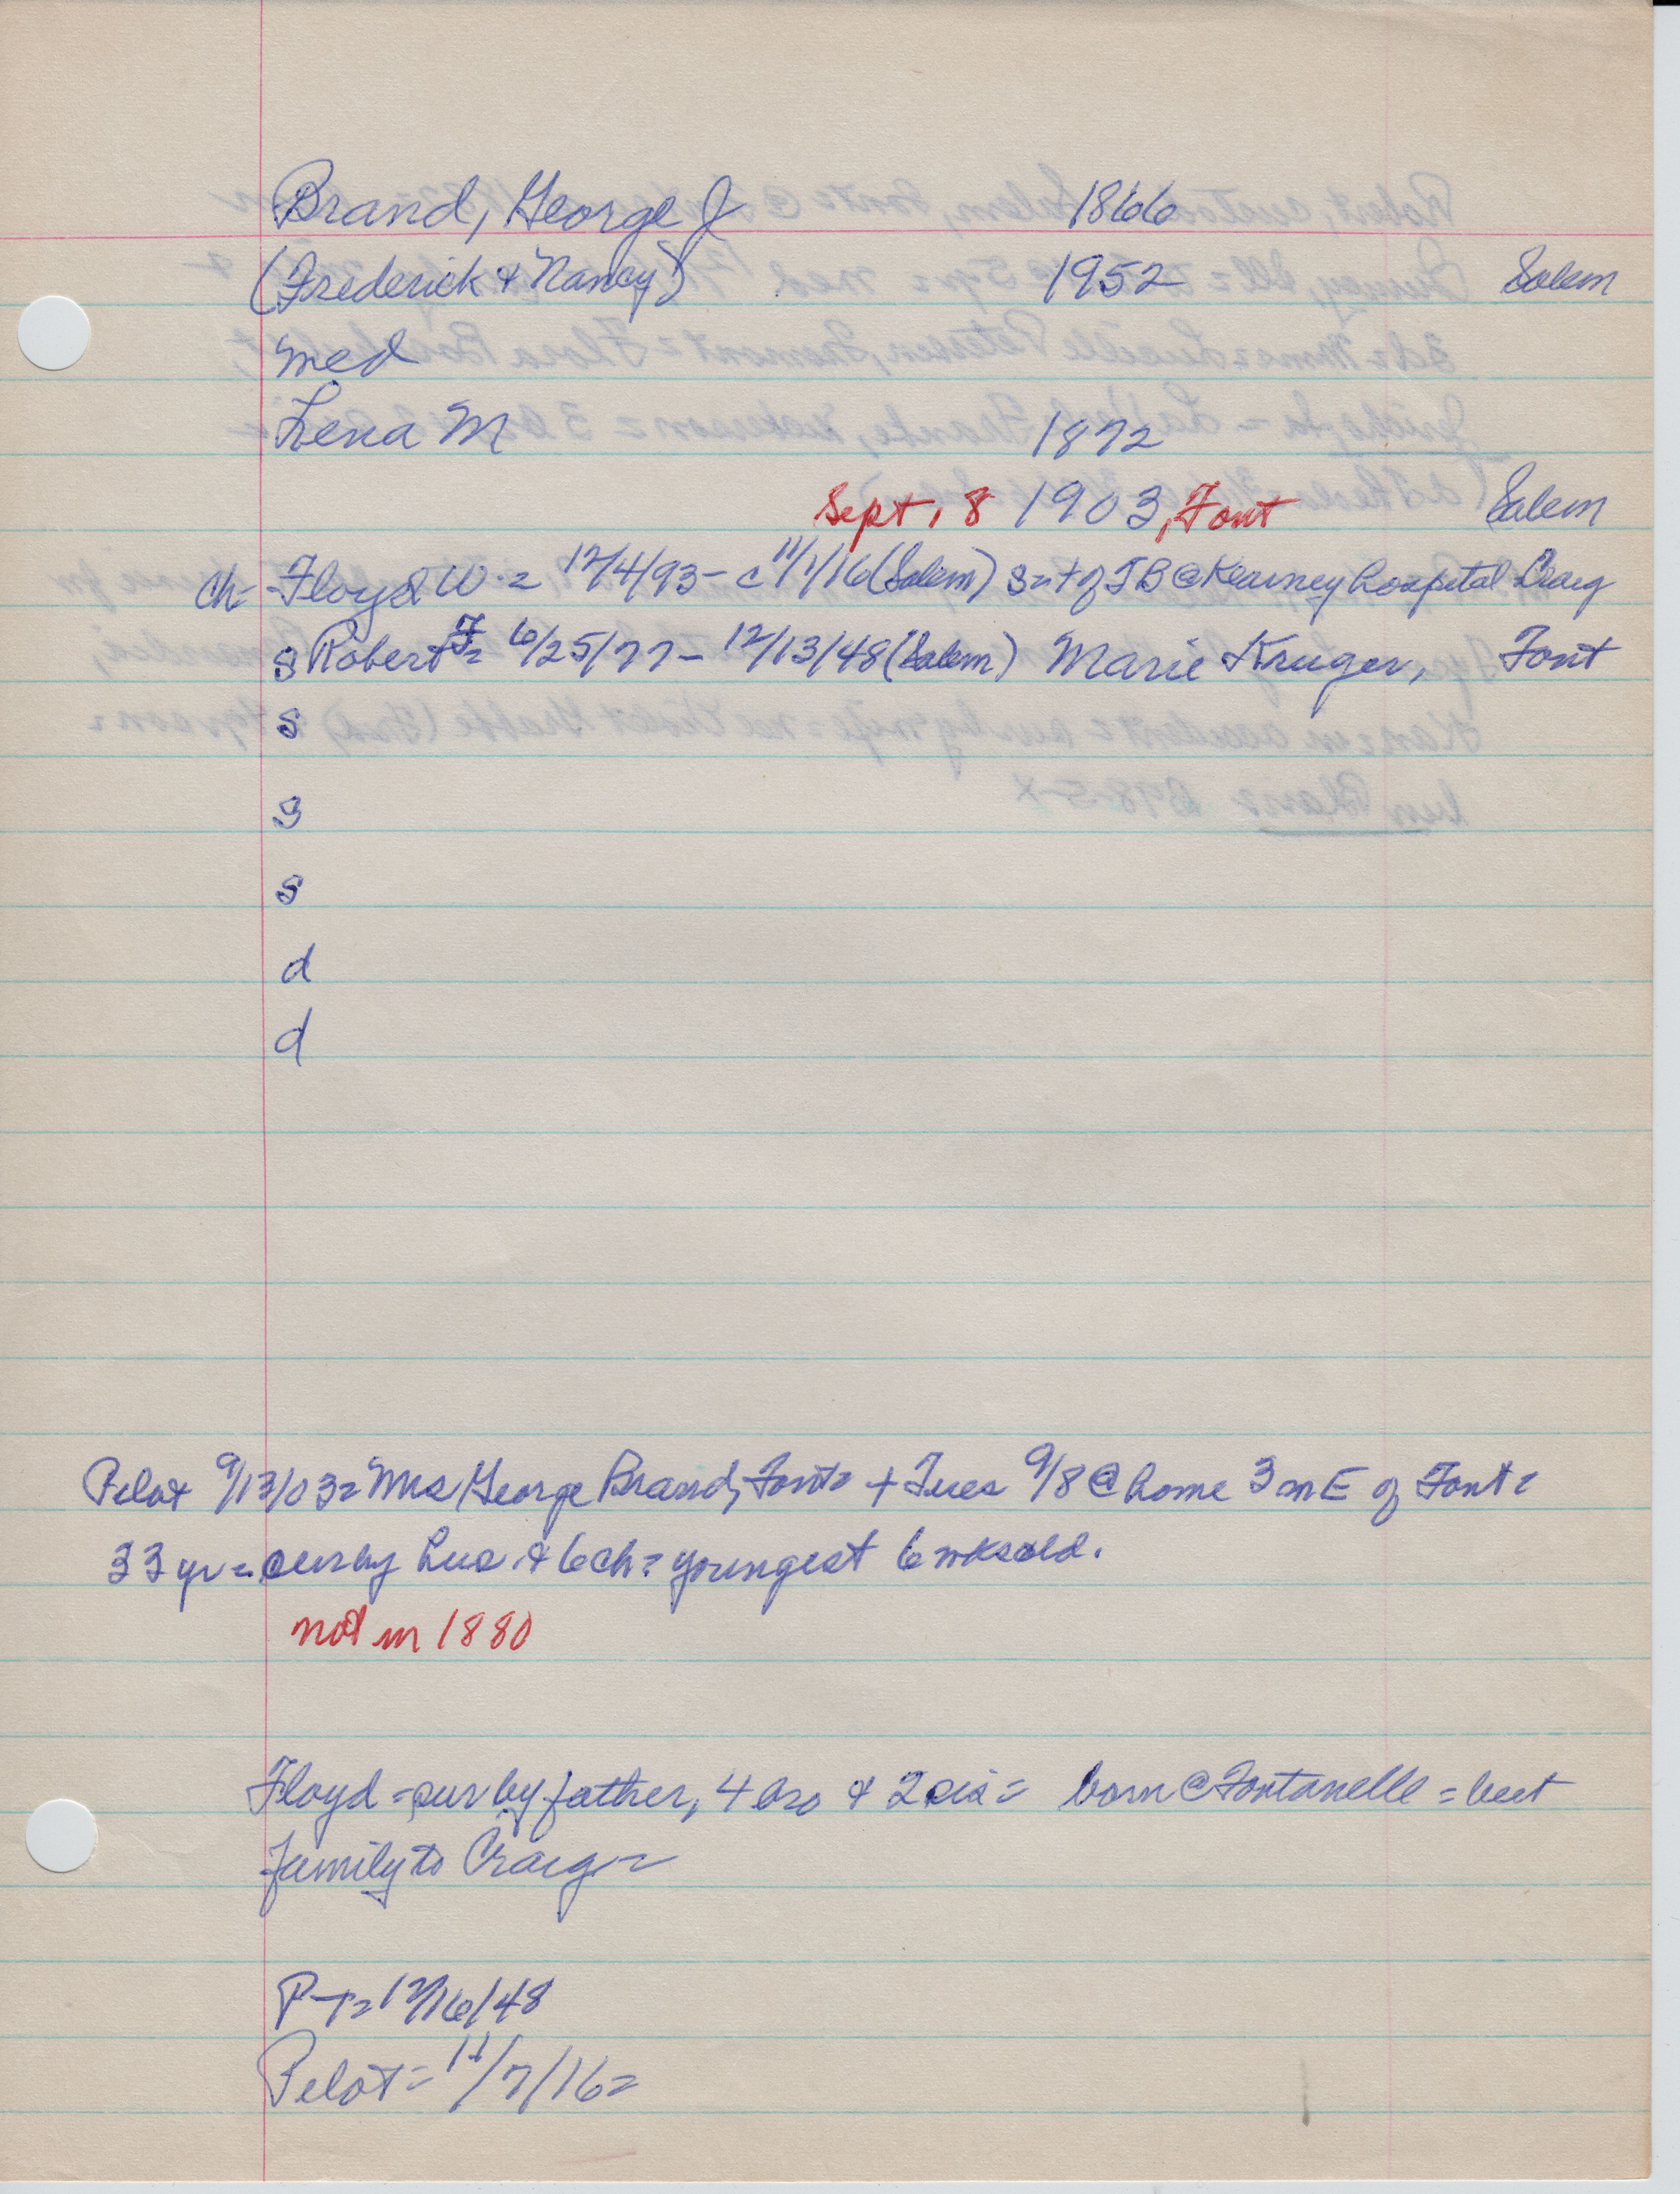 Brand, George J 1866
(Frederick & Nancy) 1952 Salem
med
Lena M 1872
Sept. 8 1903, Font Salem
ch- Floyd W = 12/4/93 - c 11/1/16 (Salem) s = + of TB @ Kearney hospital Craig
s Robert F = 6/25/77 - 12/13/48 (Salem) Marie Kruger, Font
s
s
s
d
d
Pilot 9/13/03 = Mrs George Brand, Font = + Tues 9/8 @ home 3 m E of Font =
33 yr = sur by hus & 6 ch = youngest 6 wks old.
not in 1880
Floyd = sur by father, 4 bro & 2 sis = born @ Fontanelle =
family to Craig =
P-T = 12/16/48
Pilot = 11/7/16 =